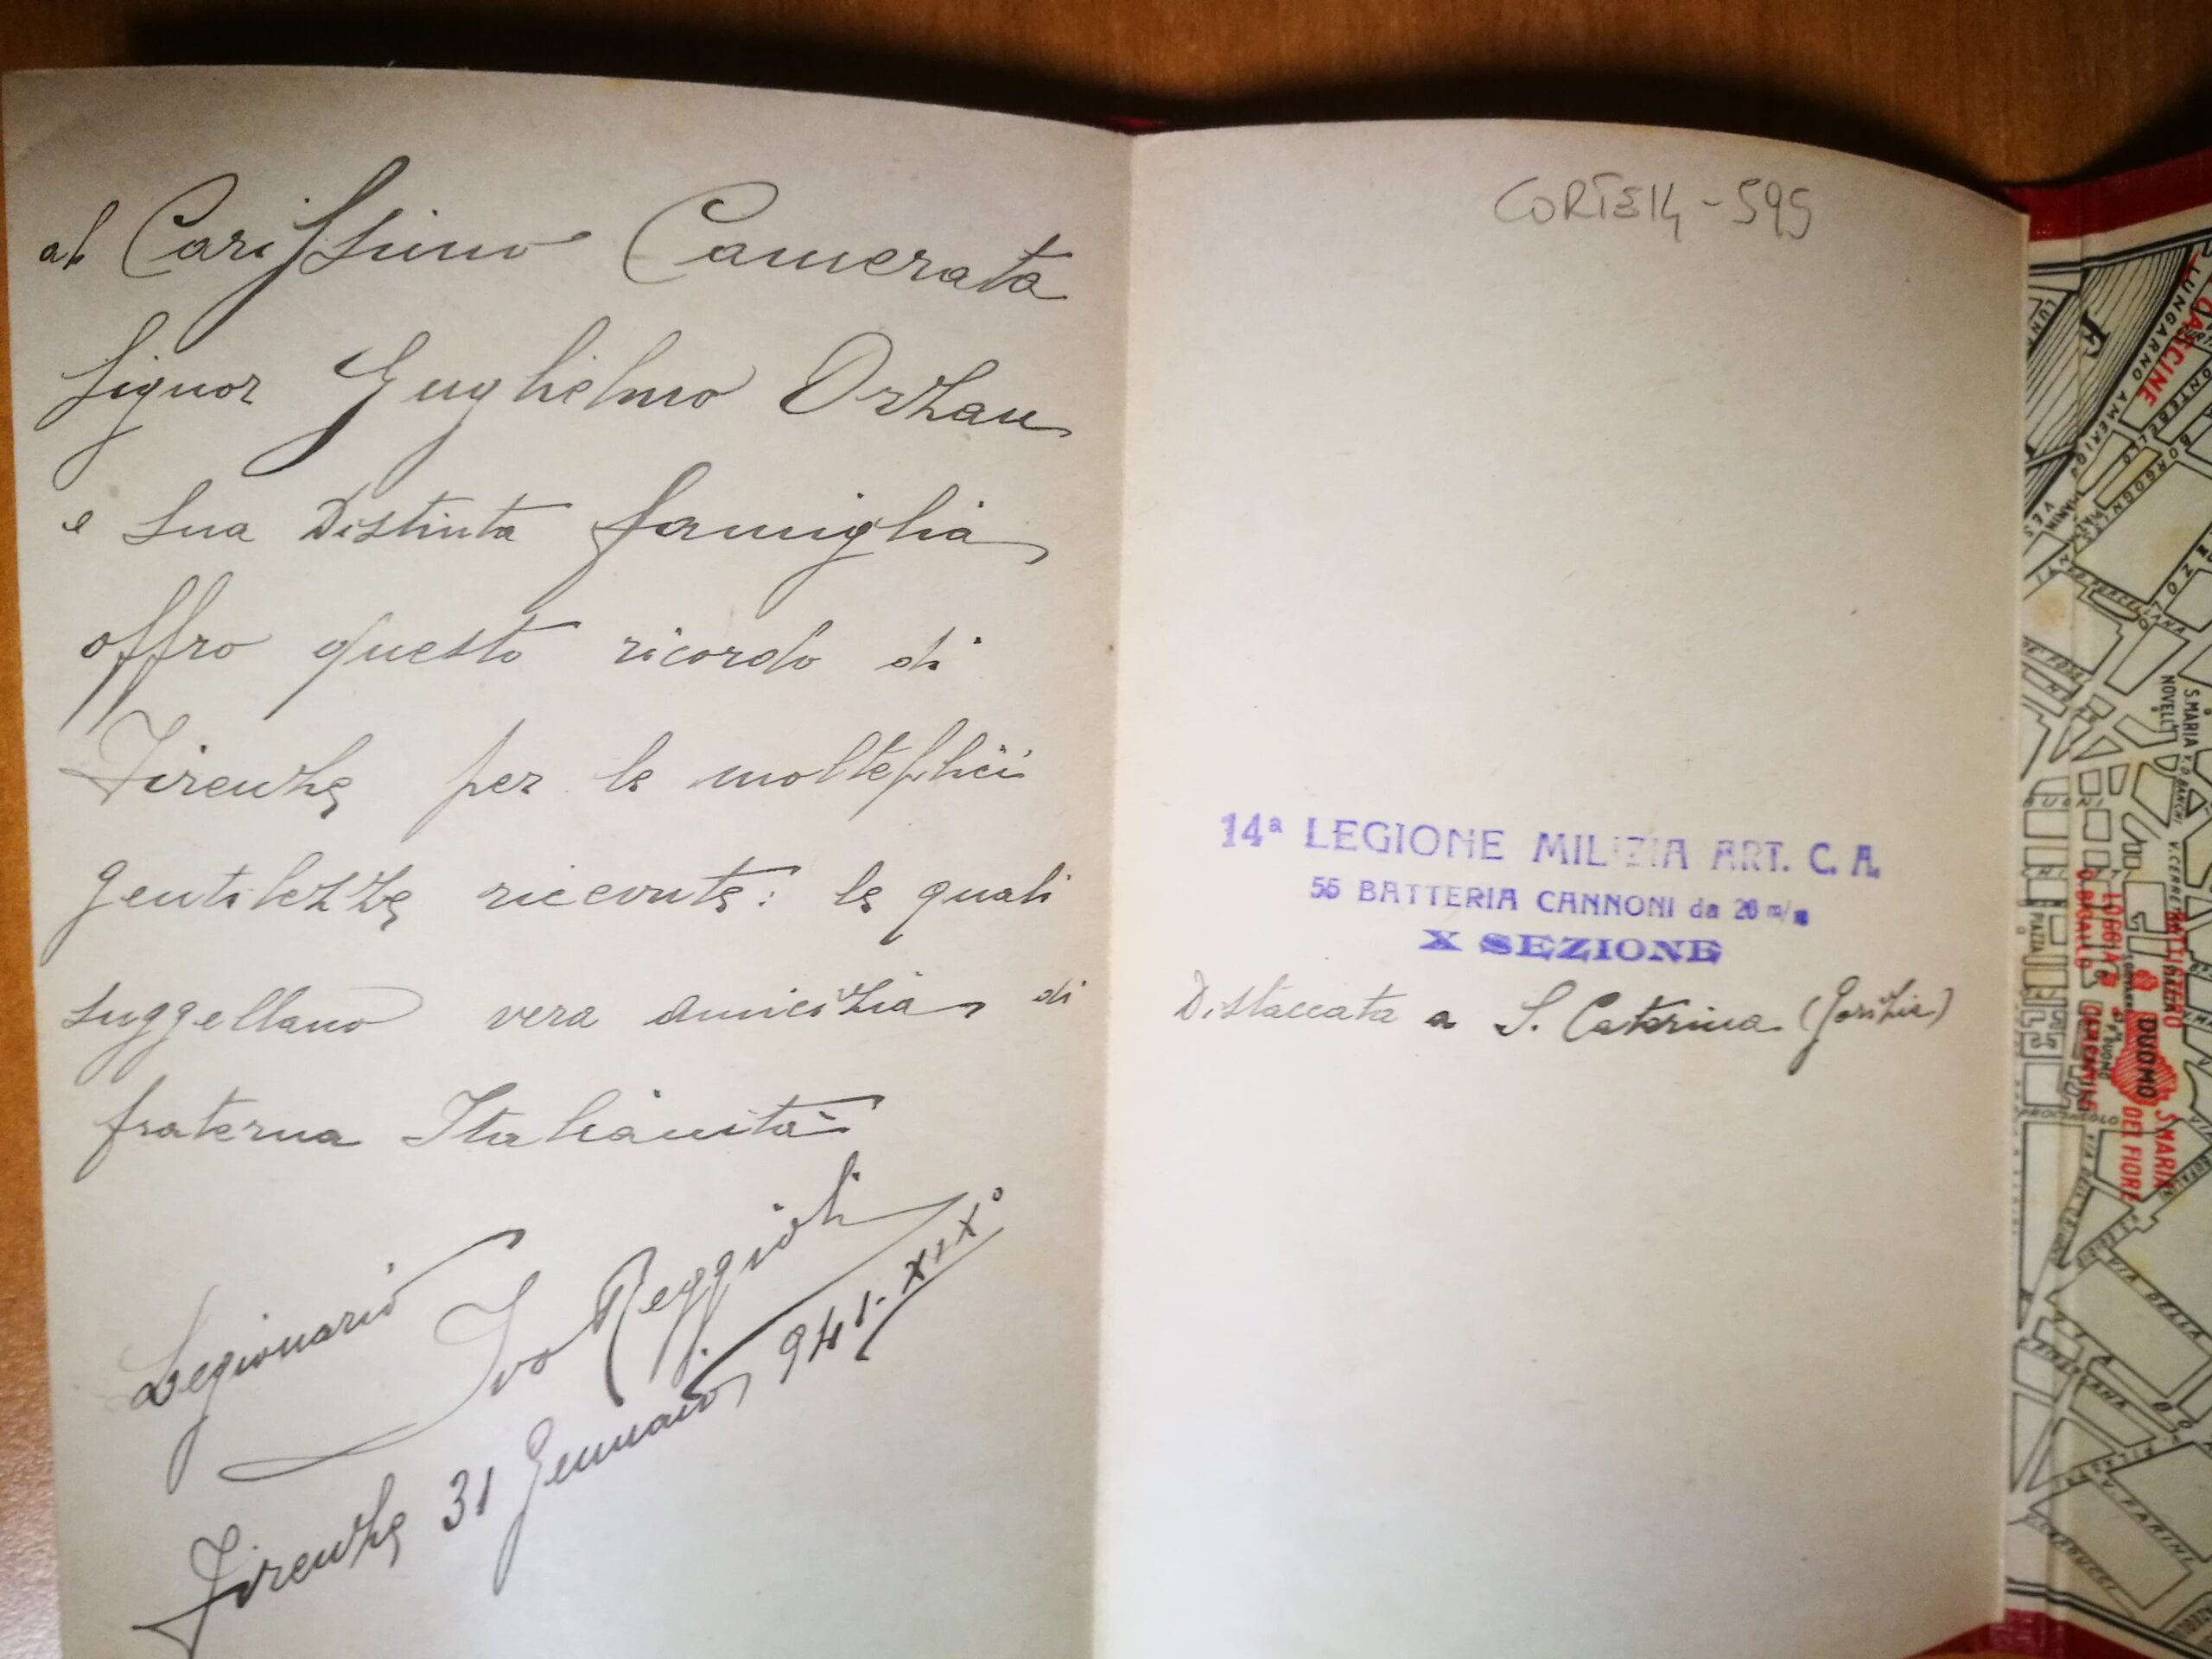 al Carissimo Camerata
Signor Guglielmo Orzan
e sua Distinta famiglia
offro questo ricordo di
Firenze per le molteplici
gentilezze ricevute: le quali
suggellano vera amicizia di
fraterna Italianità
Legionario Ivo Reggioli
Firenze 31 Gennaio 941-XIX°
CORTE14-595
14ª LEGIONE MILIZIA ART. C. A.
55 BATTERIA CANNONI da 20 m/m
X SEZIONE
Distaccata a S. Caterina (Gorizia)
CASCINE
LUNGARNO AMERIGO
S. MARIA
NOVELLA
V. D. BANCHI
PIAZZA
LOGGIA
BATTISTERO
DUOMO
S. MARIA
DEL FIORE
VIA DELLA
V. PARINI